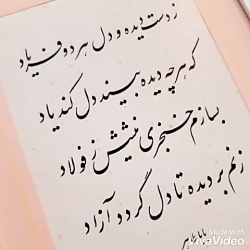 ز دست دیده و دل هر دو فریاد
که هر چه دیده بیند دل کند یاد
بسازم خنجری نیشش ز فولاد
زنم بر دیده تا دل گردد آزاد
باباطاهر
Made With
VivaVideo